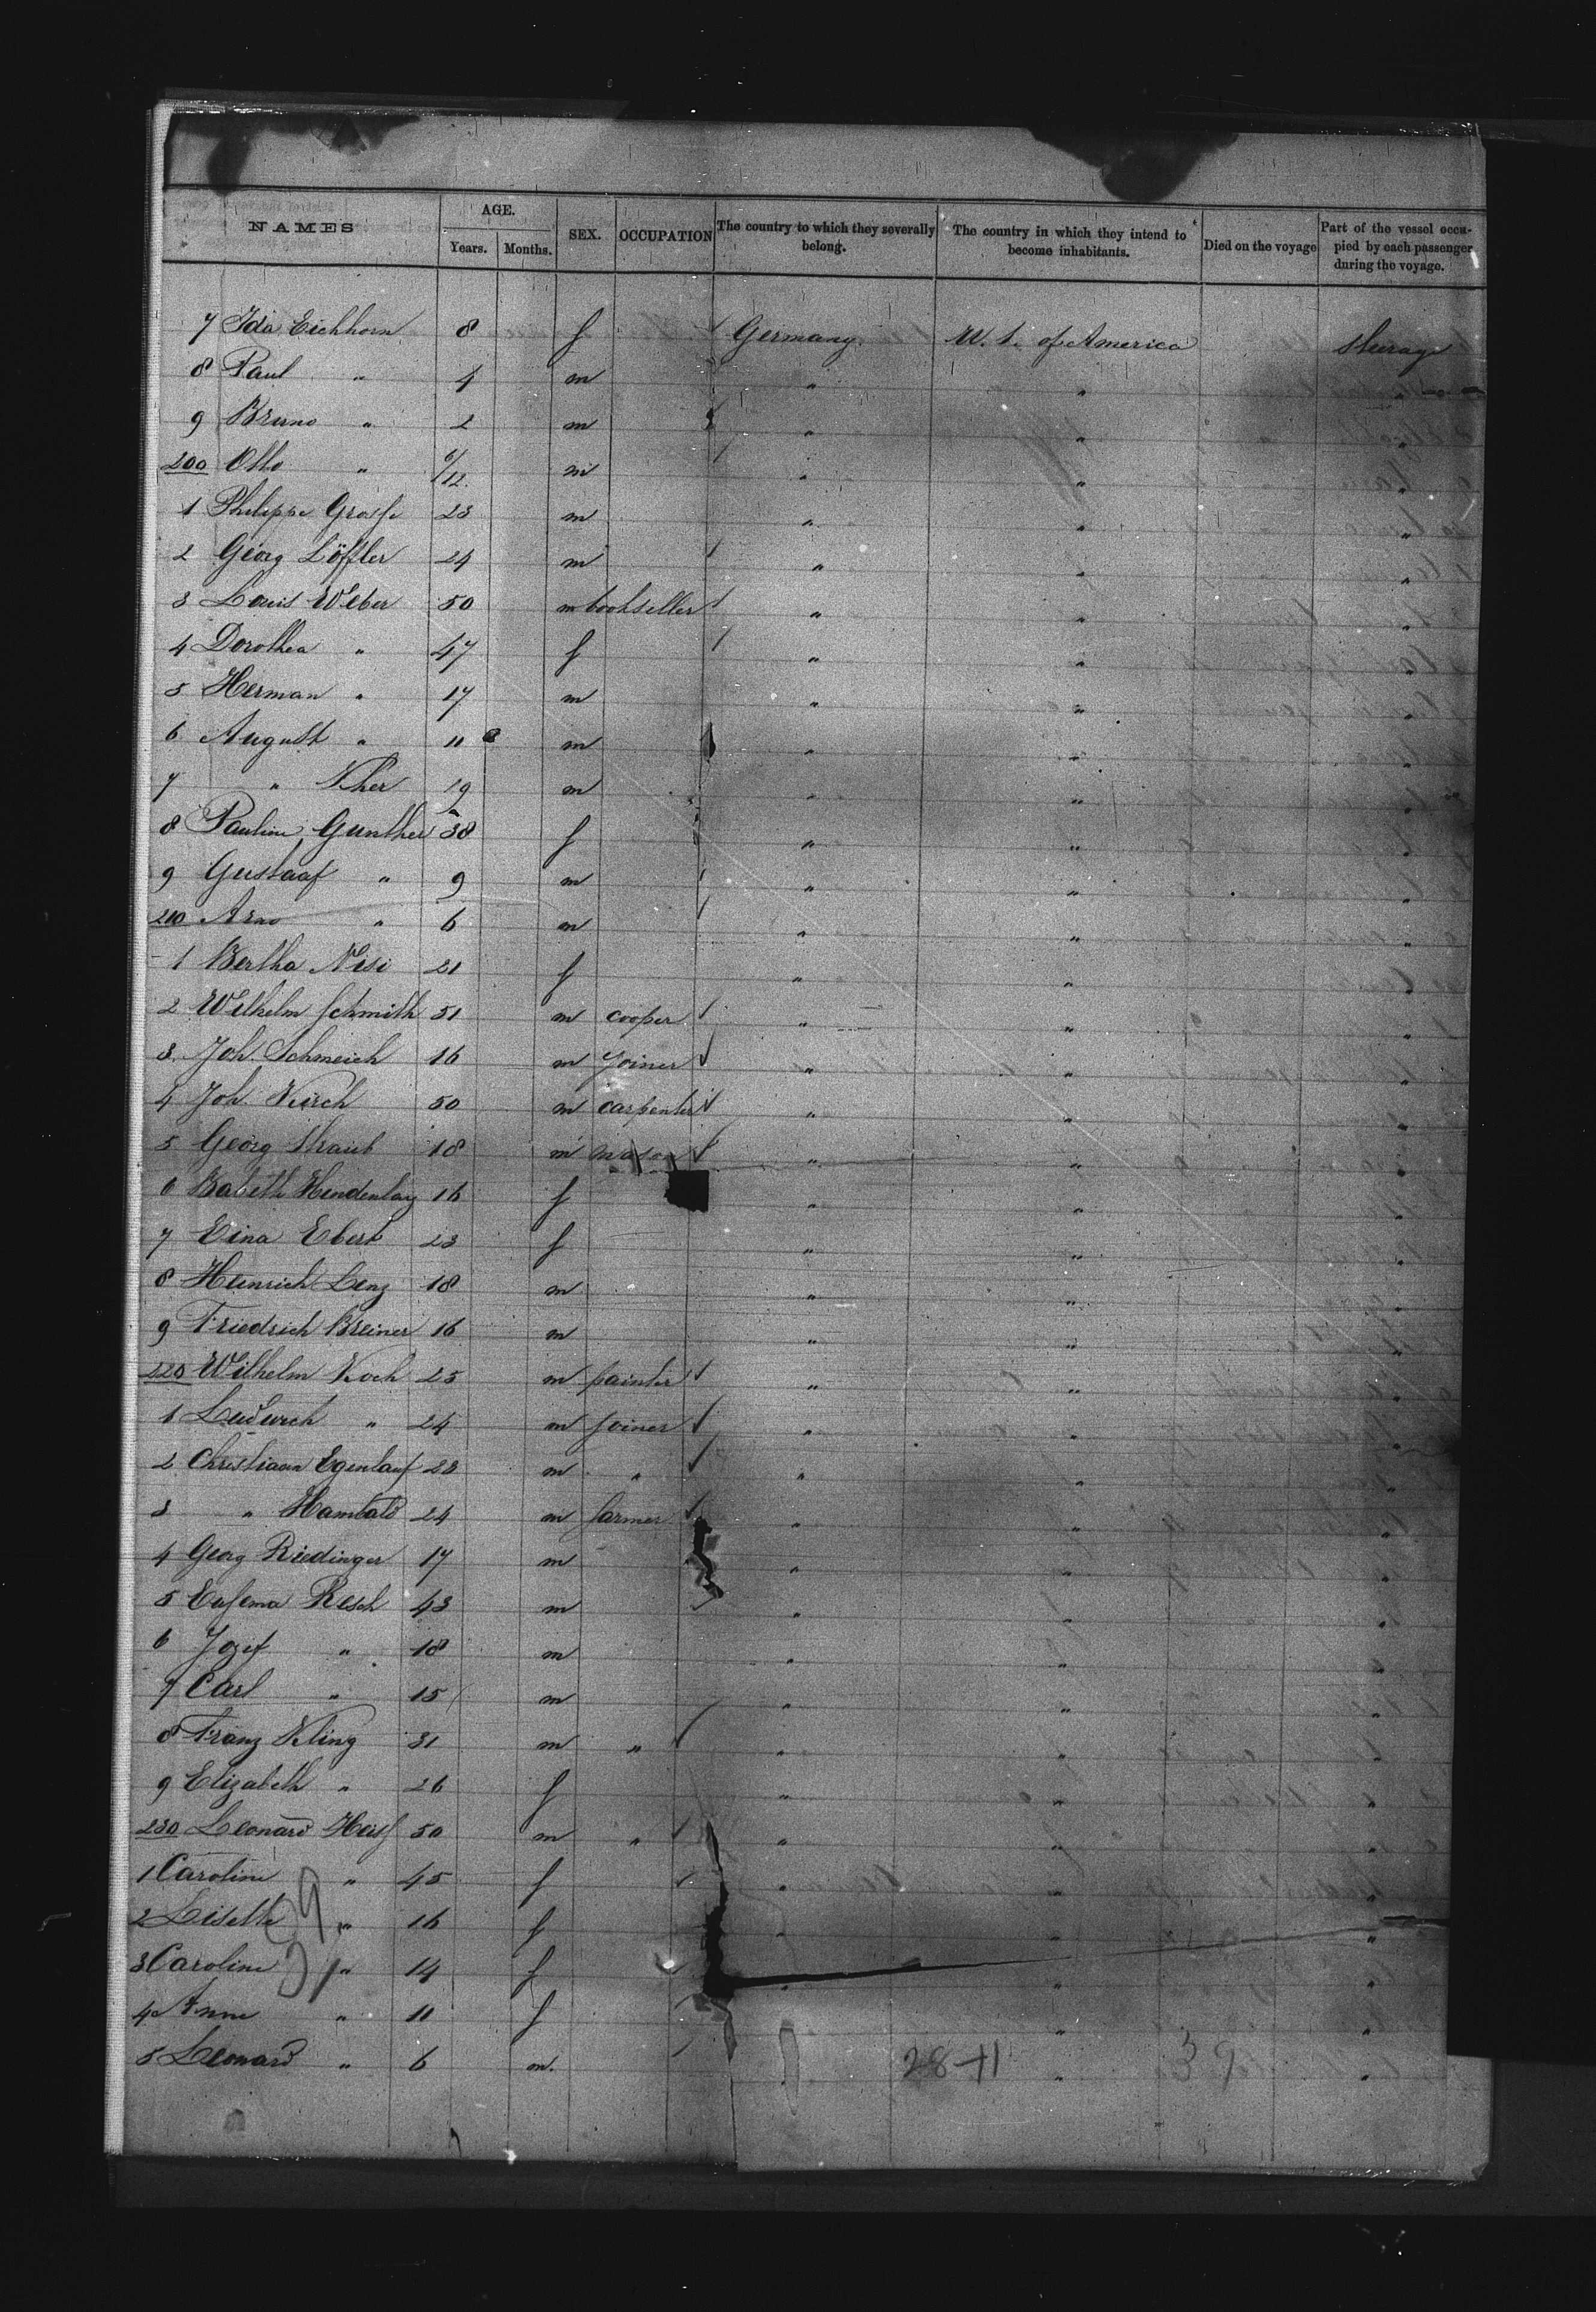 NAMES AGE. Years. Months. SEX. OCCUPATION The country to which they severally belong. The country in which they intend to become inhabitants. Died on the voyage Part of the vessel occupied by each passenger during the voyage.
7 Ida Eichhorn 8 f Germany U. S. of America Steerage
8 Paul " 4 m " " "
9 Bruno " 2 m " " "
200 Otto " 6/12 m " " "
1 Philippe 23 m " " "
2 Georg Löffler 24 m " " "
3 Louis Weber 50 m bookseller " " "
4 Dorothea " 47 f " " "
5 Herman " 17 m " " "
6 August " 11 m " " "
7 " 19 m " " "
8 Pauline Gunther 38 f " " "
9 Gustaaf " 9 m " " "
210 Arno " 6 m " " "
1 Bertha 21 f " " "
2 Wilhelm Schmith 51 m cooper " " "
3 Joh. Schmeich 16 m Joiner " " "
4 Joh. 50 m carpenter " " "
5 Georg Straub 18 m mason " " "
6 Babeth 16 f " " "
7 Eina Ebert 23 f " " "
8 Heinrich Lenz 18 m " " "
9 Friedrich Breiner 16 m " " "
220 Wilhelm Koch 25 m painter " " "
1 Ludwich " 24 m joiner " " "
2 Christiaan Egenlauf 23 m " " " "
3 " Hambald 24 m farmer " " "
4 Georg Riedinger 17 m " " "
5 Resch 43 m " " "
6 Jozef " 18 m " " "
7 Carl " 15 m " " "
8 Franz Kling 31 m " " " "
9 Elizabeth " 26 f " " "
230 Leonard Heiss 50 m " " " "
1 Caroline " 45 f " " "
2 Lisette " 16 f " " "
3 Caroline " 14 f " " "
4 Anne " 11 f " "
5 Leonard " 6 m. " "
28-11 39